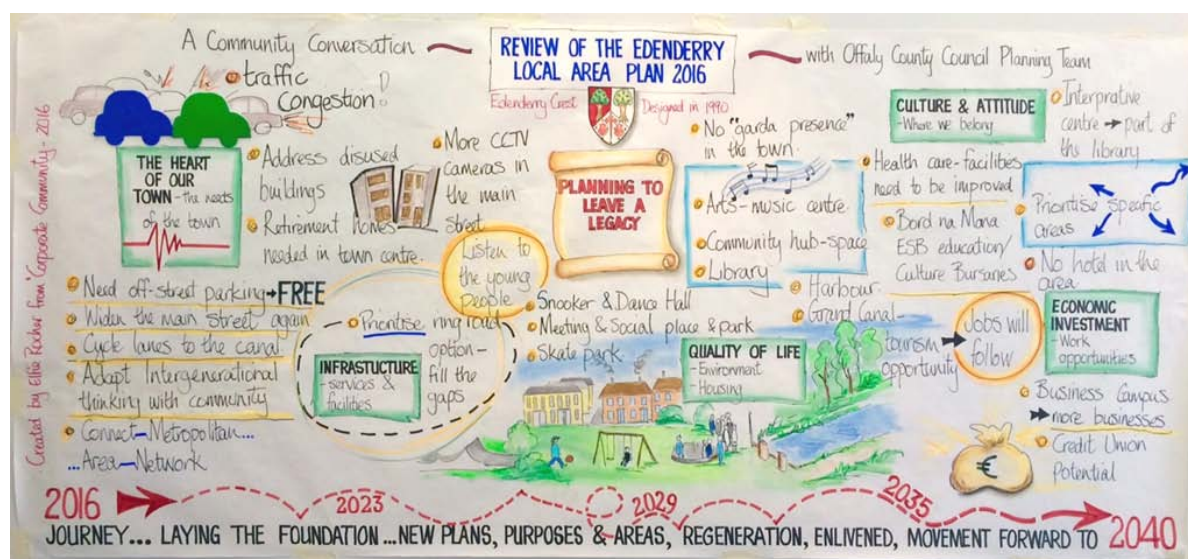 A Community Conversation
REVIEW OF THE EDENDERRY
LOCAL AREA PLAN 2016
with Offaly County Council Planning Team
Edenderry Crest
Designed in 1990
traffic
Congestion!
THE HEART
OF OUR
TOWN - the needs
of the town
Address disused
buildings
Retirement homes
needed in town centre.
More CCTV
cameras in
the main
street
Listen to
the young
people
PLANNING TO
LEAVE A
LEGACY
No "garda presence"
in the town.
Arts-music centre.
Community hub-space
Library
CULTURE & ATTITUDE
- Where we belong
Interprative
centre → part of
the library
Health care-facilities
need to be improved
Bord na Mona
ESB education/
Culture Bursaries
Prioritise specific
areas
No hotel in the
area
Need off-street parking → FREE
Widen the main street again
Cycle lanes to the canal
Adapt Intergenerational
thinking with community
Connect-Metropolitan...
...Area-Network
Prioritise ring road
option-
fill the
gaps
INFRASTUCTURE
- services &
facilities
Snooker & Dance Hall
Meeting & Social place & park
Skate park
QUALITY OF LIFE
- Environment
- Housing
Harbour
Grand Canal-
tourism
opportunity
Jobs will
follow
ECONOMIC
INVESTMENT
- Work
opportunities
Business Campus
more businesses
Credit Union
Potential
€
Created by Elfie Rocher from 'Corporate Community - 2016
2016
2023
2029
2035
2040
JOURNEY... LAYING THE FOUNDATION...NEW PLANS, PURPOSES & AREAS, REGENERATION, ENLIVENED, MOVEMENT FORWARD TO